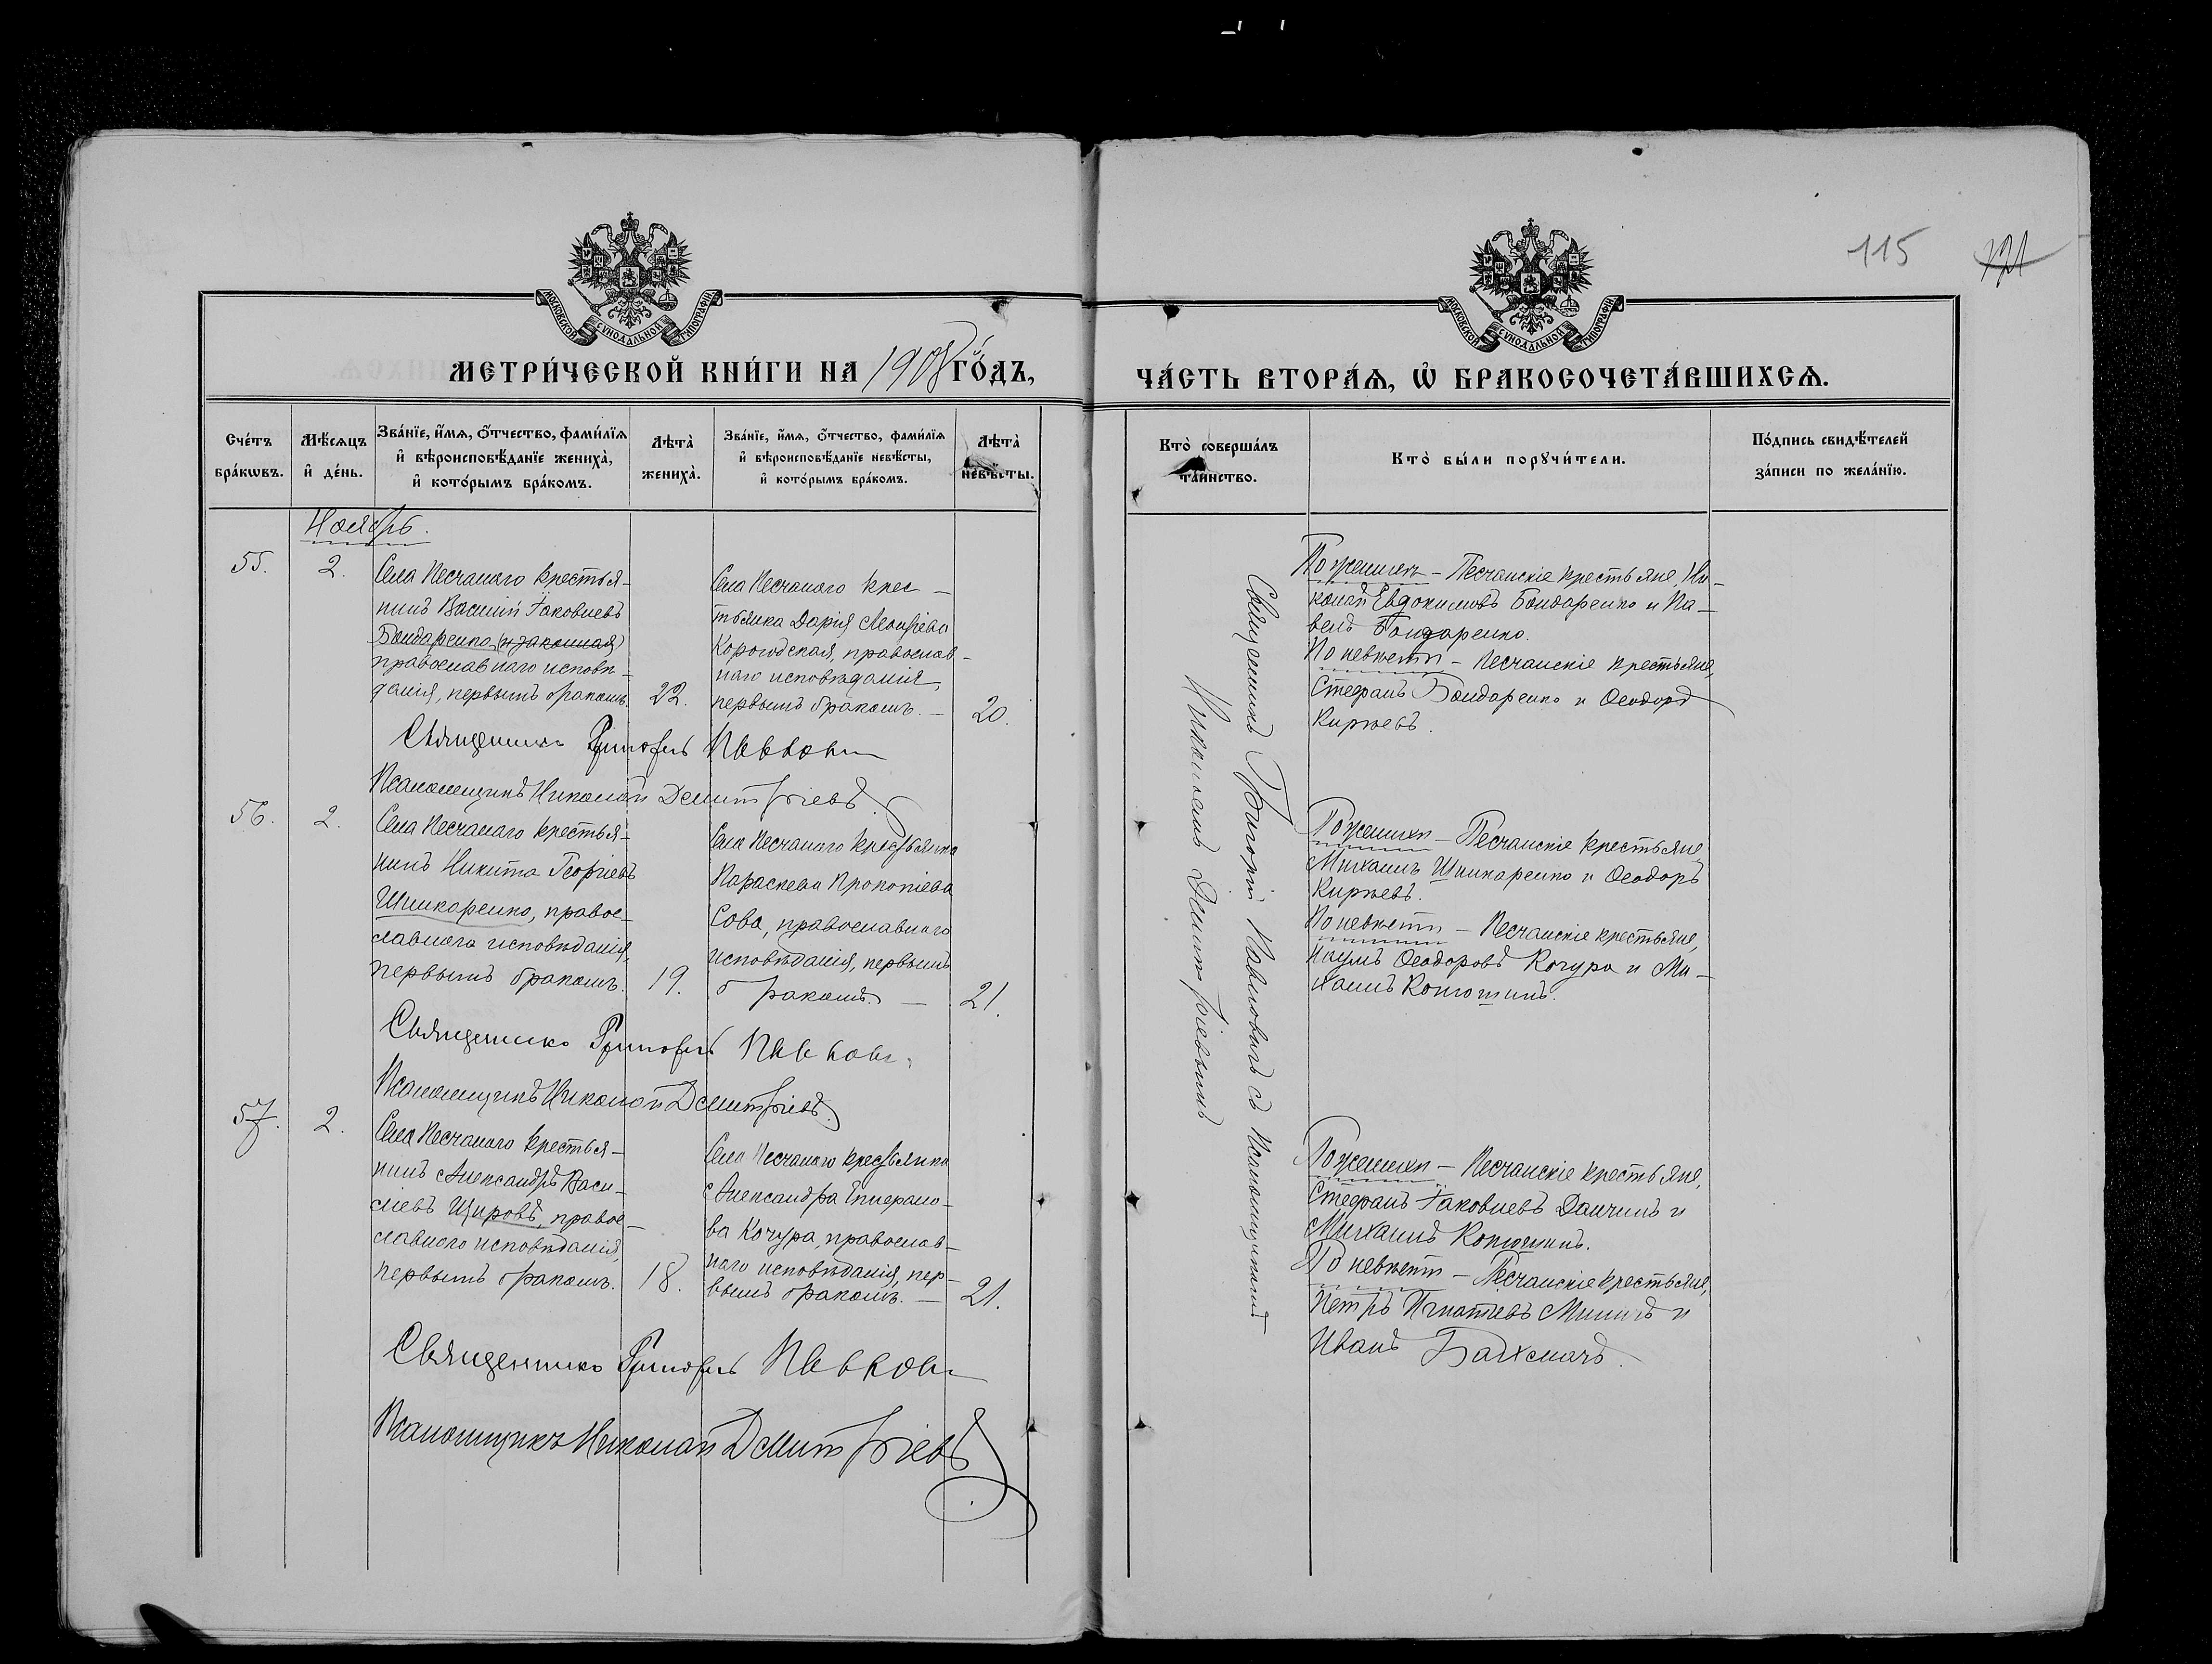 115
МОСКОВСКОЙ СѴНОДАЛЬНОЙ ТИПОГРАФІИ
МОСКОВСКОЙ СѴНОДАЛЬНОЙ ТИПОГРАФІИ
МЕТРИ́ЧЕСКОЙ КНИ́ГИ НА 1908 ГО́ДЪ,
ЧА́СТЬ ВТОРА́Ѧ, Ѽ БРАКОСОЧЕТА́ВШИХСѦ.
Сче́тъ бра́кωвъ.
Мѣ́сяцъ и҆ де́нь.
Зва́нїе, и҆́мя, ѻ҆́тчество, фами́лїя
и҆ вѣроисповѣ́данїе жениха̀,
и҆ кото́рымъ бра́комъ.
Лѣта̀ жениха̀.
Зва́нїе, и҆́мя, ѻ҆́тчество, фами́лїя
и҆ вѣроисповѣ́данїе невѣ́сты,
и҆ кото́рымъ бра́комъ.
Лѣта̀ невѣ́сты.
Кто̀ соверша́лъ та́инство.
Кто̀ бы́ли порꙋчи́тели.
По́дпись свидѣ́телей
за́писи по жела́нїю.
Ноябрь.
55.
2.
Села Песчанаго крестья-
нинъ Василій Іаковлевъ
Бондаренко (незаконная)
православнаго исповѣ-
данія, первымъ бракомъ.
22.
Села Песчанаго крес-
тьянка Дарія
православ-
наго исповѣданія,
первымъ бракомъ. —
20.
По женихѣ — Песчанскіе крестьяне, Ни-
колай Евдокимовъ Бондаренко и Па-
велъ Бондаренко.
По невѣстѣ — Песчанскіе крестьяне,
Стефанъ Бондаренко и Ѳеодоръ
Кирѣевъ.
Священникъ Григорій Павлович
Псаломщикъ Николай Демитріевъ.
56.
2.
Села Песчанаго крестья-
нинъ Никита Георгіевъ
Шинкаренко, правос-
лавнаго исповѣданія,
первымъ бракомъ.
19.
Села Песчанаго крестьянка
Параскева Прокопіева
Сова, православнаго
исповѣданія, первымъ
бракомъ. —
21.
По женихѣ — Песчанскіе крестьяне,
Михаилъ Шинкаренко и Ѳеодоръ
Кирѣевъ.
По невѣстѣ — Песчанскіе крестьяне,
Наумъ Ѳеодоровъ Кочура и Ми-
хаилъ Котюшинъ.
Священникъ Григорій Павлович
Псаломщикъ Николай Демитріевъ.
57.
2.
Села Песчанаго крестья-
нинъ Александръ Васи-
ліевъ Щировъ, правос-
лавнаго исповѣданія,
первымъ бракомъ.
18.
Села Песчанаго крестьянка
Александра
ва Кочура, православ-
наго исповѣданія, пер-
вымъ бракомъ. —
21.
По женихѣ — Песчанскіе крестьяне,
Стефанъ Іаковлевъ Данчинъ и
Михаилъ Котюшинъ.
По невѣстѣ — Песчанскіе крестьяне,
Петръ Игнатіевъ и
Иванъ Бахмачъ.
Священникъ Григорій Павлович
Псаломщикъ Николай Демитріевъ
Священникъ Григорій Павловичъ съ Псаломщикомъ
Николаемъ Демитріевымъ